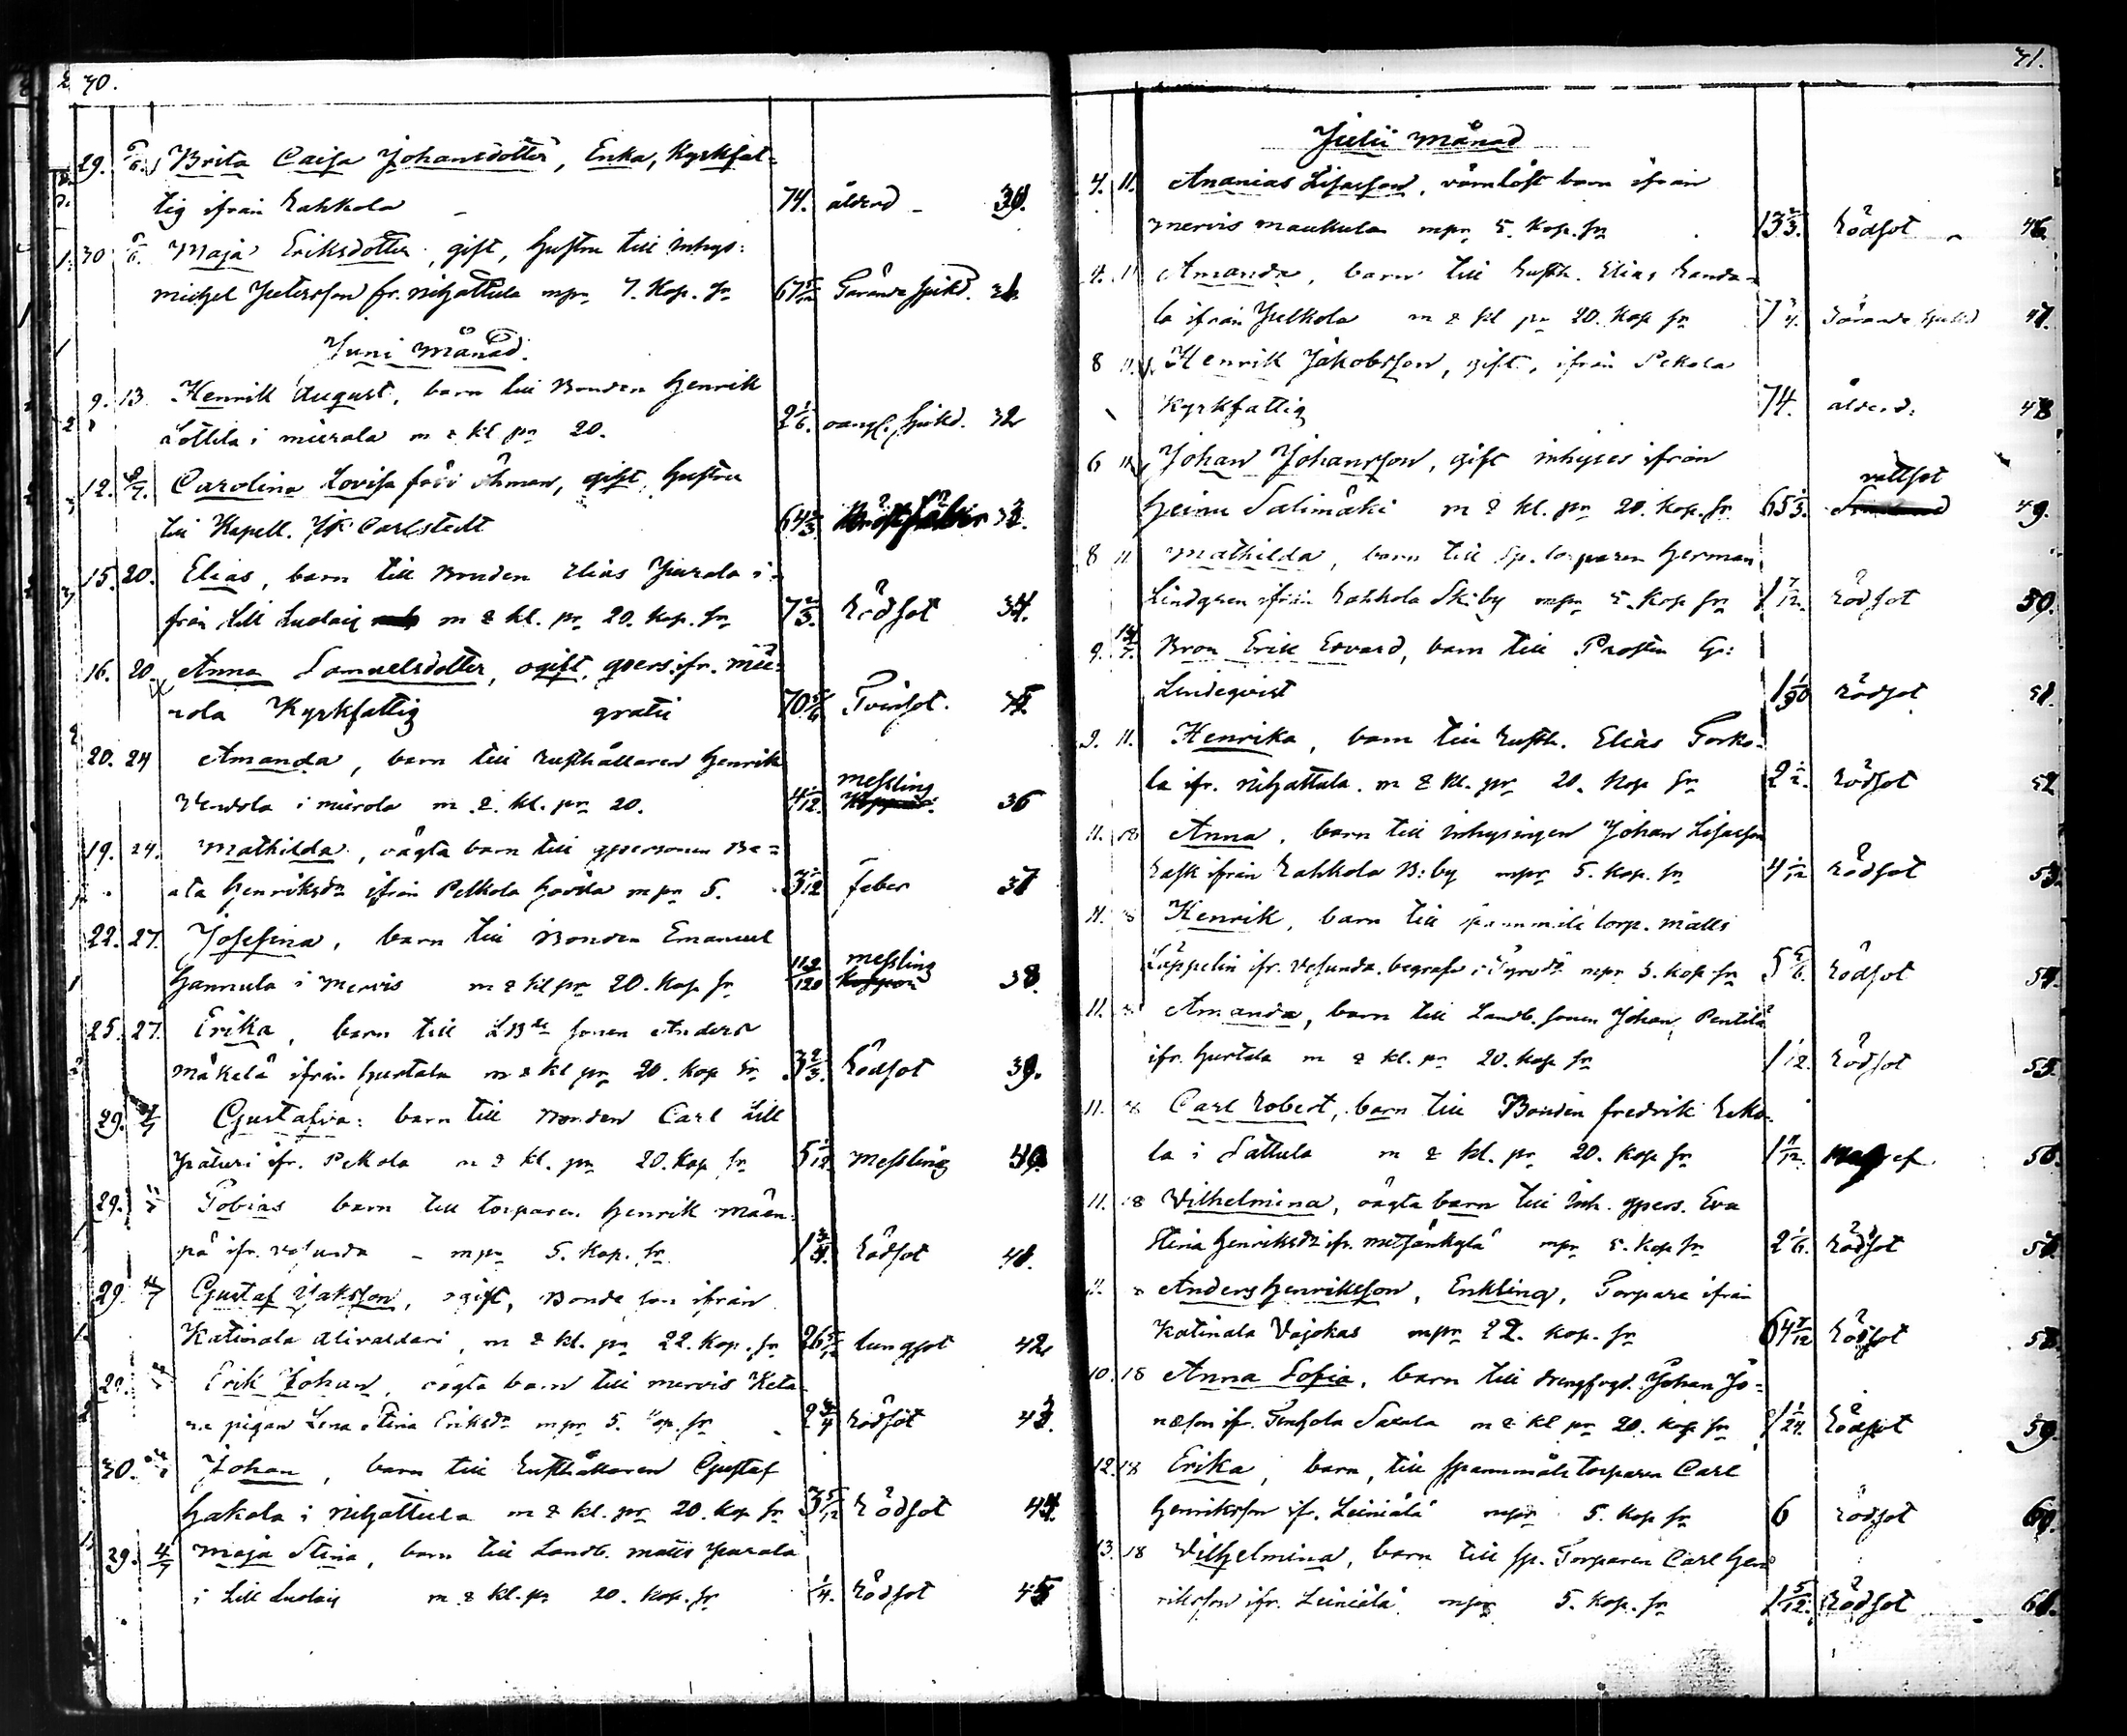 30.
29. 6/6. Brita Caisa Johansdotter, Enka, Kyrkfat-
tig ifrån Rahkola 74. ålderd. 30.
30 6/6. Maja Eriksdotter, gift, hustru till Inhys:
Michel Petersson fr. Nihattula mpr 7. Kop. Sr 67 Tärande sjukd. 31.
Juni Månad.
9. 13. Henrik August, barn till Bonden Henrik
Lottila i Mierola m & kl pr 20. 2 1/6. oangf. sjukd. 32
12. Carolina Lovisa född Öhman, gift, hustru
till Kapell. Carlstedt 64 2/3. 33.
15. 20. Elias, barn till Bonden Elias Jurala i-
från Lill Luolais m & kl. pr 20. Kop. Sr 7 2/3. Rödsot 34.
16. 20. Anna Samuelsdotter, ogift, qpers. ifr. Mie-
rola Kyrkfattig gratis 70 5/6 Tvinsot. 35.
20. 24 Amanda, barn till Rusthållaren Henrik
i Mierola m. & kl. pr 20. 4 1/12. Messling 36
19. 24. Mathilda, oägta barn till qpersonen Be-
ata Henriksdr ifrån Pelkola Hovila mpr 5. 3 1/12 feber 37
22. 27. Josefina, barn till Bonden Emanuel
Hannula i Mervis m & kl pr 20. Kop Sr 11 2/120 Messling 38.
25. 27. Erika, barn till sonen Anders
Mäkelä ifrån Hurtala m & kl pr 20. Kop Sr 3 2/3. Rödsot 39.
29. 4/7 Gustafva: barn till Bonden Carl Lill
ifr. Pekola m & kl. pr 20. Kop Sr 5 1/12. Messling 40.
29. Tobias barn till torparen Henrik Mäen-
pä ifr. Vesunda mpr 5. Kop. Sr. 1 3/4. Rödsot 41.
29 Gustaf Isaksson, ogift, Bonde son ifrån
Katinala Alivaldari, m & kl. pr 22. Kop. Sr 26 Lungsot 42.
29. Erik Johan, oägta barn till Mervis
pigan Lena Stina Eriksdr mpr 5. Kop. Sr 2 3/4 Rödsot 43.
30. Johan, barn till Rusthållaren Gustaf
Hakala i Nihattula m & kl. pr 20. Kop Sr 3 5/12 Rödsot 44.
29. 4/7 Maja Stina, barn till Landb. Matts Jurala
i Lill Luolais m & kl. pr 20. Kop. Sr 1/4. Rödsot 45
31.
Julii Månad
4. 11. Ananias Lisasson, värnlöst barn ifrån
Mervis Maukula mpr 5. Kop. Sr 13 2/3. Rödsot 46.
4. 11 Amanda, barn till Rusth. Elias Handa-
la ifrån Pelkola m & kl pr 20. Kop Sr 7 3/4. Tärande sjukd 47.
8 11. Henrik Jakobsson, gift, ifrån Pekola
Kyrkfattig 74. ålderd. 48
6 11. Johan Johansson, gift inhyses ifrån
Heinu Salimäki m & kl. pr 20. Kop. Sr 65 1/3. vattsot 49.
8 11 Mathilda, barn till Sp. torparen Herman
Lindgren ifrån Rahkola Skiby mpr 5. Kop Sr 1 7/12. Rödsot 50.
9. Erik Edvard, barn till Prosten
Lindeqvist 1 Rödsot 51.
9. 11. Henrika, barn till Rusth. Elias Torko-
la ifr. Nihattula. m & kl. pr 20. Kop Sr 2 1/2. Rödsot 52
11. 18 Anna, barn till Inhysingen Johan Lisasson
Rask ifrån Rahkola B:by mpr 5. Kop. Sr 4 1/12 Rödsot 53.
11. 18 Henrik, barn till spannmåls torp. Matts
Läppelin ifr. Vesunda, begrafv. i mpr 5. Kop Sr 5 5/6. Rödsot 54.
11. 18 Amanda, barn till Landb. sonen Johan Pentilä
ifr. Hurtala m & kl. pr 20. Kop Sr 1 1/12. Rödsot 55.
11. 18 Carl Robert, barn till Bonden Fredrik
la i Sattula m & kl. pr 20. Kop Sr 1 11/12. 56.
11. 18 Vilhelmina, oägta barn till Inh. qpers. Eva
Stina Henriksdr ifr. Metsänkylä mpr 5. Kop Sr 2 1/6. Rödsot 57.
Anders Henriksson, Enkling, Torpare ifrån
Katinala Vajokas mpr 22. Kop. Sr 64 7/12 Rödsot 58.
10. 18 Anna Sofia, barn till drengfogd. Johan Jo-
nasson ifr. Saxala m & kl pr 20. Kop Sr 1 1/24. Rödsot 59.
12. 18 Erika, barn, till spannmåls torparen Carl
Henriksson ifr. Leiniälä mpr 5. Kop Sr 6 Rödsot 60.
13. 18 Vilhelmina, barn till sp. Torparen Carl Hen-
riksson ifr. Leiniälä mpr 5. Kop. Sr 1 5/12. Rödsot 61.